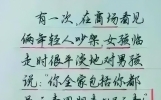 有一次，在商场看见
俩年轻人吵架，女孩临
走时很平淡地对男孩
说：“你全家包括你都